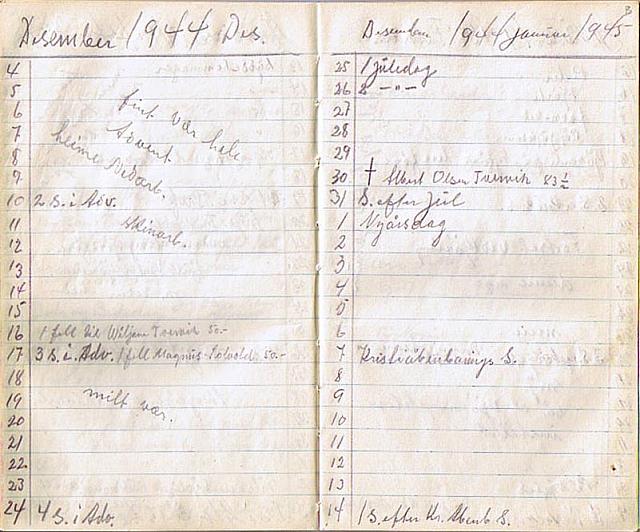 Desember 1944 Des.
4
5
6
fint vær hele
7
Advent.
8
heime Vedarb.
9
10 2 s. i Adv.
11
skinarb.
12
13
14
15
16 1 fell til Tvervik 50.-
17 3 s. i Adv. 1 fell Magnus 50.-
18
19
milt vær.
20
21
22
23
24 4 s. i Adv.
3
Desember 1944 Januar 1945
25 1 juledag
26 2 —"—
27
28
29
30 † Albert Olsen Tvervik 83 ½
31 S. efter Jul
1 Nyårsdag
2
3
4
5
6
7 Kristiåbenbarings S.
8
9
10
11
12
13
14 1 S. efter Kr. Åbenb S.